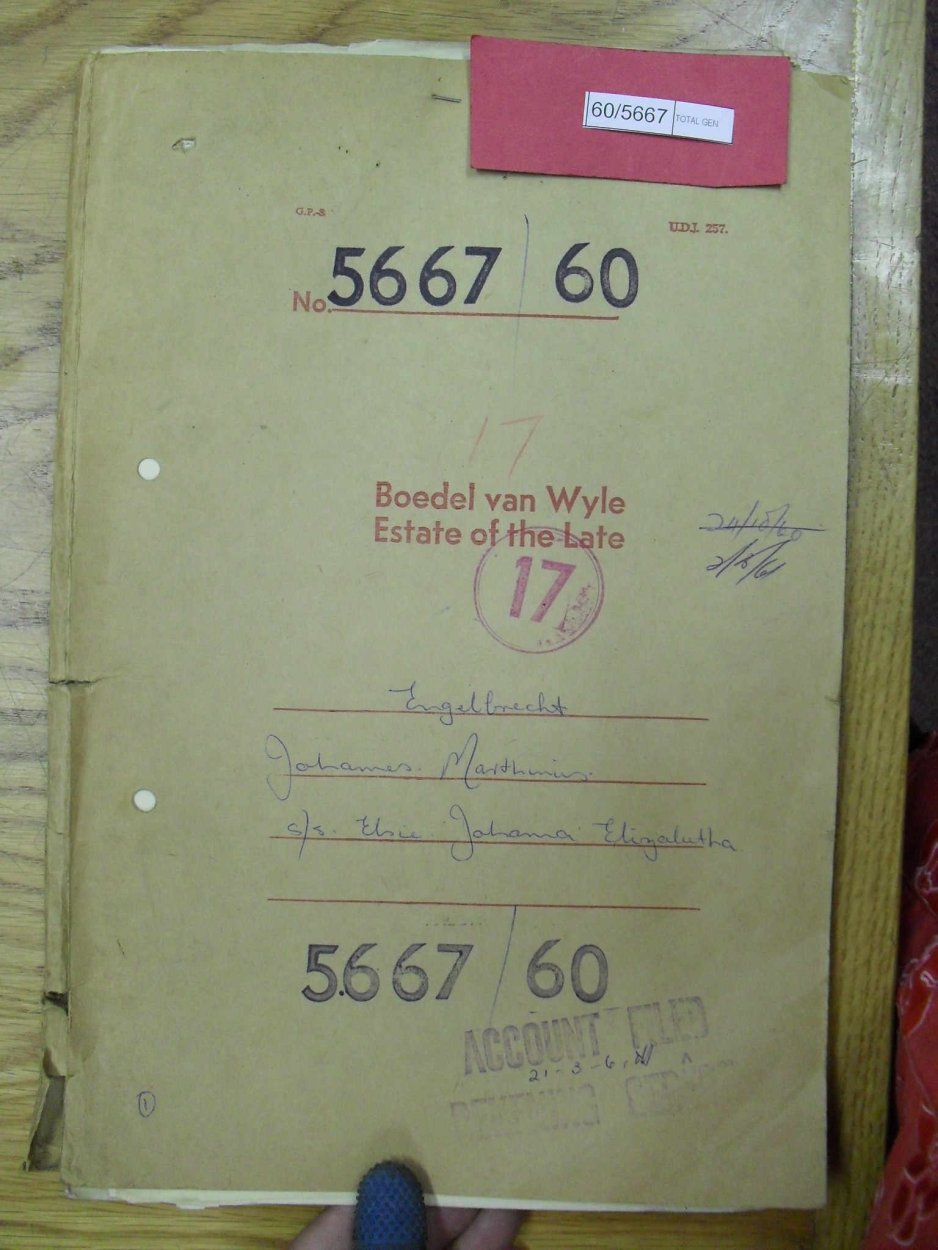 60/5667 TOTAL GEN
G.P.-S.
U.D.J. 257.
No. 5667/60
17
Boedel van Wyle
Estate of the Late
24/10/60
17
Engelbrecht
Johannes Marthinus
s/s. Elsie Johanna Elizabetha
5667/60
ACCOUNT FILED
21-3-61
REKENING
1